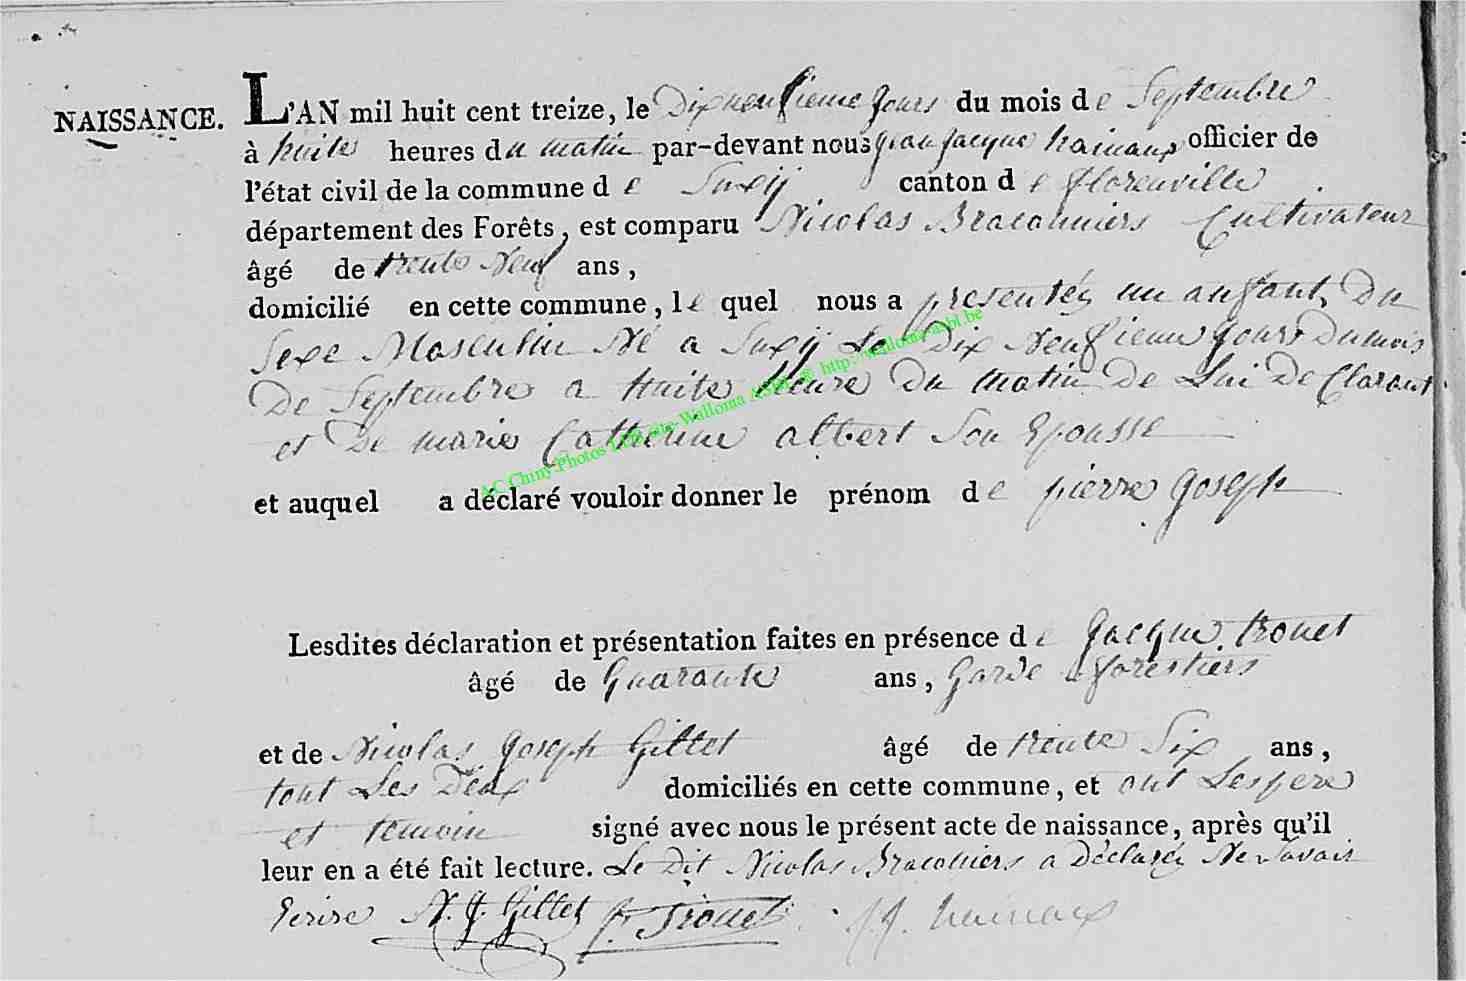 NAISSANCE.
L'AN mil huit cent treize, le Dix neufieme Jours du mois de Septembre
à huite heures du matin par-devant nous Jean Jacque hainaux officier de
l'état civil de la commune de Suxÿ canton de florenville
département des Forêts, est comparu Nicolas Braconniers Cultivateur
âgé de trente Neuf ans,
domicilié en cette commune, le quel nous a presentéz un anfant, Du
Sexe Masculin Né a Suxÿ Le Dix Neufieme Jours Dumois
De Septembre a huite heure Du Matin De Lui DeClarant
et De marie Catherine albert Son Epousse
et auquel a déclaré vouloir donner le prénom de pierre Joseph
Lesdites déclaration et présentation faites en présence de Jacque trouet
âgé de Quarante ans, Garde forestiers
et de Nicolas Joseph Gillet âgé de trente Six ans,
tout Les Deux domiciliés en cette commune, et ont Lespere
et temoin signé avec nous le présent acte de naissance, après qu'il
leur en a été fait lecture. Le Dit Nicolas Braconniers a Déclaréz Ne Savoir
Ecrire N. J. Gillet J. Trouet J. J. hainaux
AC Chiny Photos LJM site Walloma ASBL ® http://walloma-asbl.be